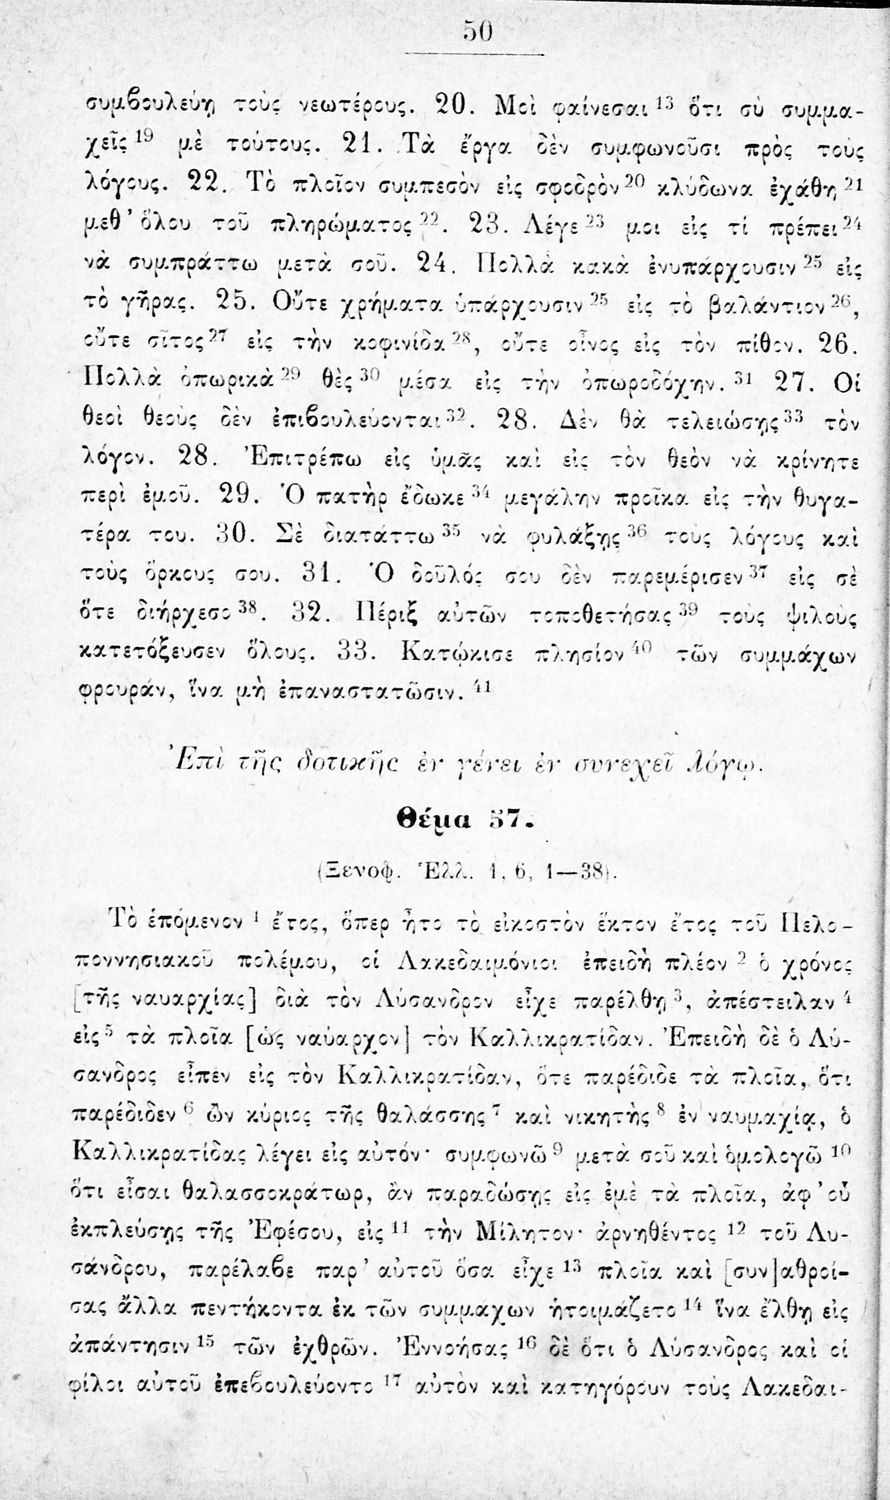 50
συμβουλεύῃ τοὺς νεωτέρους. 20. Μοὶ φαίνεσαι ¹³ ὅτι σὺ συμμα-
χεῖς ¹⁹ μὲ τούτους. 21. Τὰ ἔργα δὲν συμφωνοῦσι πρὸς τοὺς
λόγους. 22. Τὸ πλοῖον συμπεσὸν εἰς σφοδρὸν ²⁰ κλύδωνα ἐχάθη ²¹
μεθ' ὅλου τοῦ πληρώματος ²². 23. Λέγε ²³ μοι εἰς τί πρέπει ²⁴
νὰ συμπράττω μετὰ σοῦ. 24. Πολλὰ κακὰ ἐνυπάρχουσιν ²⁵ εἰς
τὸ γῆρας. 25. Οὔτε χρήματα ὑπάρχουσιν ²⁵ εἰς τὸ βαλάντιον ²⁶,
οὔτε σῖτος ²⁷ εἰς τὴν κοφινίδα ²⁸, οὔτε οἶνος εἰς τὸν πίθον. 26.
Πολλὰ ὀπωρικὰ ²⁹ θὲς ³⁰ μέσα εἰς τὴν ὀπωροδόχην. ³¹ 27. Οἱ
θεοὶ θεοὺς δὲν ἐπιβουλεύονται ³². 28. Δὲν θὰ τελειώσῃς ³³ τὸν
λόγον. 28. Ἐπιτρέπω εἰς ὑμᾶς καὶ εἰς τὸν θεὸν νὰ κρίνητε
περὶ ἐμοῦ. 29. Ὁ πατὴρ ἔδωκε ³⁴ μεγάλην προῖκα εἰς τὴν θυγα-
τέρα του. 30. Σὲ διατάττω ³⁵ νὰ φυλάξῃς ³⁶ τοὺς λόγους καὶ
τοὺς ὅρκους σου. 31. Ὁ δοῦλός σου δὲν παρεμέρισεν ³⁷ εἰς σὲ
ὅτε διήρχεσο ³⁸. 32. Πέριξ αὐτῶν τοποθετήσας ³⁹ τοὺς ψιλοὺς
κατετόξευσεν ὅλους. 33. Κατῴκισε πλησίον ⁴⁰ τῶν συμμάχων
φρουράν, ἵνα μὴ ἐπαναστατῶσιν. ⁴¹
Ἐπὶ τῆς δοτικῆς ἐν γένει ἐν συνεχεῖ λόγῳ.
Θέμα 57.
(Ξενοφ. Ἑλλ. 1, 6, 1—38).
Τὸ ἑπόμενον ¹ ἔτος, ὅπερ ἦτο τὸ εἰκοστὸν ἕκτον ἔτος τοῦ Πελο-
ποννησιακοῦ πολέμου, οἱ Λακεδαιμόνιοι ἐπειδὴ πλέον ² ὁ χρόνος
[τῆς ναυαρχίας] διὰ τὸν Λύσανδρον εἶχε παρέλθῃ ³, ἀπέστειλαν ⁴
εἰς ⁵ τὰ πλοῖα [ὡς ναύαρχον] τὸν Καλλικρατίδαν. Ἐπειδὴ δὲ ὁ Λύ-
σανδρος εἶπεν εἰς τὸν Καλλικρατίδαν, ὅτε παρέδιδε τὰ πλοῖα, ὅτι
παρέδιδεν ⁶ ὢν κύριος τῆς θαλάσσης ⁷ καὶ νικητὴς ⁸ ἐν ναυμαχίᾳ, ὁ
Καλλικρατίδας λέγει εἰς αὐτόν· συμφωνῶ ⁹ μετὰ σοῦ καὶ ὁμολογῶ ¹⁰
ὅτι εἶσαι θαλασσοκράτωρ, ἂν παραδώσῃς εἰς ἐμὲ τὰ πλοῖα, ἀφ' οὗ
ἐκπλεύσῃς τῆς Ἐφέσου, εἰς ¹¹ τὴν Μίλητον· ἀρνηθέντος ¹² τοῦ Λυ-
σάνδρου, παρέλαβε παρ' αὐτοῦ ὅσα εἶχε ¹³ πλοῖα καὶ [συν]αθροί-
σας ἄλλα πεντήκοντα ἐκ τῶν συμμάχων ἡτοιμάζετο ¹⁴ ἵνα ἔλθῃ εἰς
ἀπάντησιν ¹⁵ τῶν ἐχθρῶν. Ἐννοήσας ¹⁶ δὲ ὅτι ὁ Λύσανδρος καὶ οἱ
φίλοι αὐτοῦ ἐπεβουλεύοντο ¹⁷ αὐτὸν καὶ κατηγόρουν τοὺς Λακεδαι-